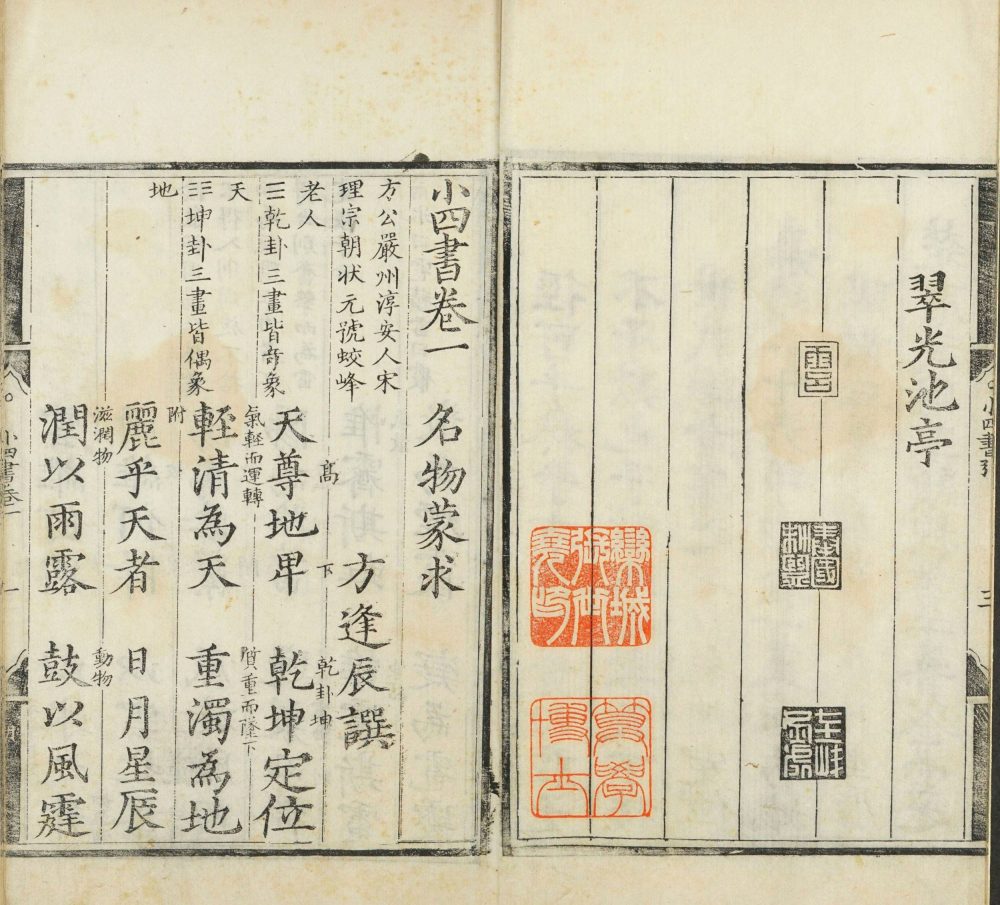 翠光池亭
蒙學
博士
三
小四書卷一 名物蒙求
方公嚴州淳安人宋
理宗朝狀元號蛟峰
老人
方逢辰譔
☰乾卦三畫皆奇象
天
☷坤卦三畫皆偶象
地
高 下 乾卦坤
天尊地卑 乾坤定位
氣輕而運轉 質重而墜下
輕清為天 重濁為地
附
麗乎天者 日月星辰
滋潤物 動物
潤以雨露 鼓以風霆
小四書卷一
一